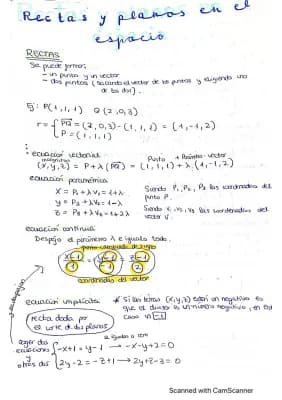 Rectas y planos en el
espacio
RECTAS
Se puede formar:
- un punto y un vector
- dos puntos (sacando el vector de los puntos y eligiendo uno
de los dos).
Ej: P(1,1,1) Q(2,0,3)
r = { PQ = (2,0,3)-(1,1,1) = (1,-1,2)
P = (1,1,1)
• ecuación vectorial
Punto + Parámetro·vector
(x,y,z) = P+λ(PQ) = (1,1,1)+λ(1,-1,2)
ecuación paramétrica
x = P₁+λV₁ = 1+λ
y = P₂+λV₂ = 1-λ
z = P₃+λV₃ = 1+2λ
Siendo P₁, P₂, P₃ las coordenadas del
punto P.
Siendo V₁, V₂, V₃ las coordenadas del
vector V.
ecuación continua
Despejo el parámetro λ e igualo todo.
punto cambiado de signo
x-1/1 = y-1/-1 = z-1/2
coordenadas del vector
ecuación implícita
recta dada por
el corte de dos planos
* Si las letras (x,y,z) están en negativo es
que el número es negativo, en este
caso -1
coger dos
ecuaciones
y
otras dos
e igualar a cero
{ -x+1 = y-1 → -x-y+2=0
2y-2 = -z+1 → 2y+z-3=0
Scanned with CamScanner